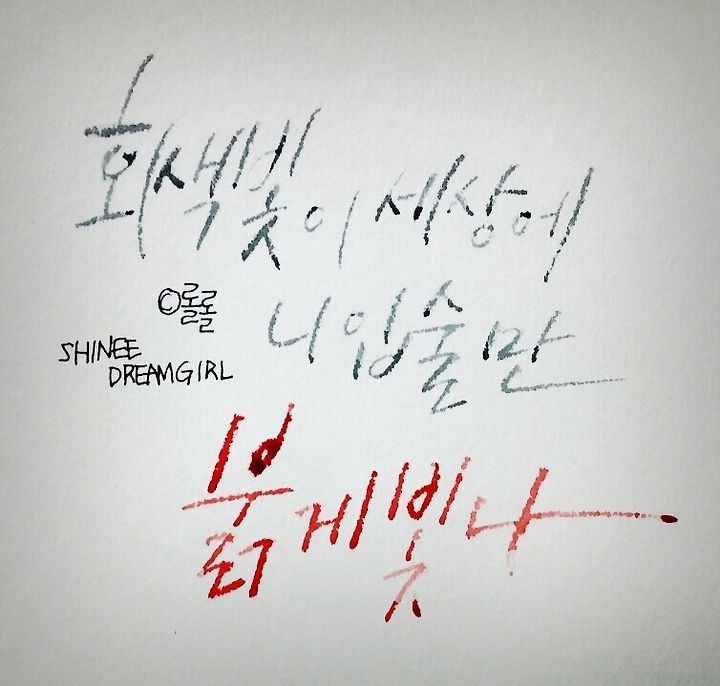 회색빛이 세상에
니 입술만
붉게 빛나
©롤롤
SHINEE
DREAMGIRL